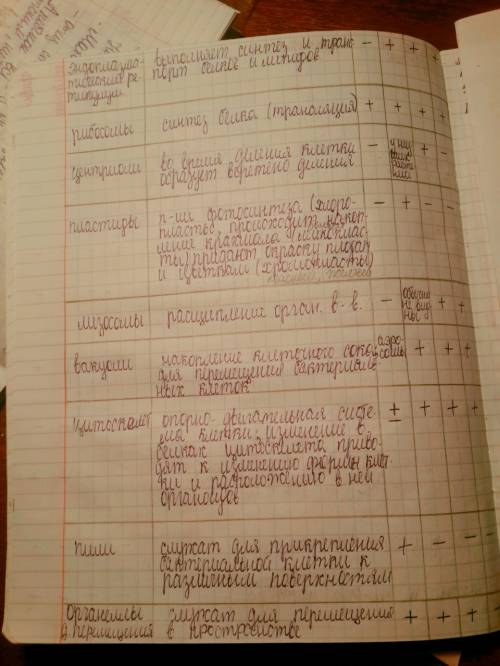 эндоплазма-
тический ре-
тикулум
выполняет синтез и транс-
порт белков и липидов
- + + +
рибосомы
синтез белка (трансляция)
+ + + +
центриоли
во время деления клетки
образует веретено деления
- у низ + -
пластиды
п-ии фотосинтеза (хлоро-
пласты), происходит накоп-
ление крахмала (лейкоплас-
ты) придают окраску плодам
и цветкам (хромопласты)
- + - -
лизосомы
расщипление орган. в-в.
- обычно + +
не вид
ны
вакуоли
накопление клеточного сока,
для перемещения бактериаль-
ных клеток
аэро + + +
сомы
цитоскелет
опорно-двигательная систе-
ма клетки; изменение в
белках цитоскелета приво-
дят к изменению формы клет-
ки и расположению в ней
органоидов
± + + +
пили
служат для прикрепления
бактериальной клетки к
различным поверхностям
+ - - -
Органеллы
д. перемещения
служат для перемещения
в пространстве
+ + +